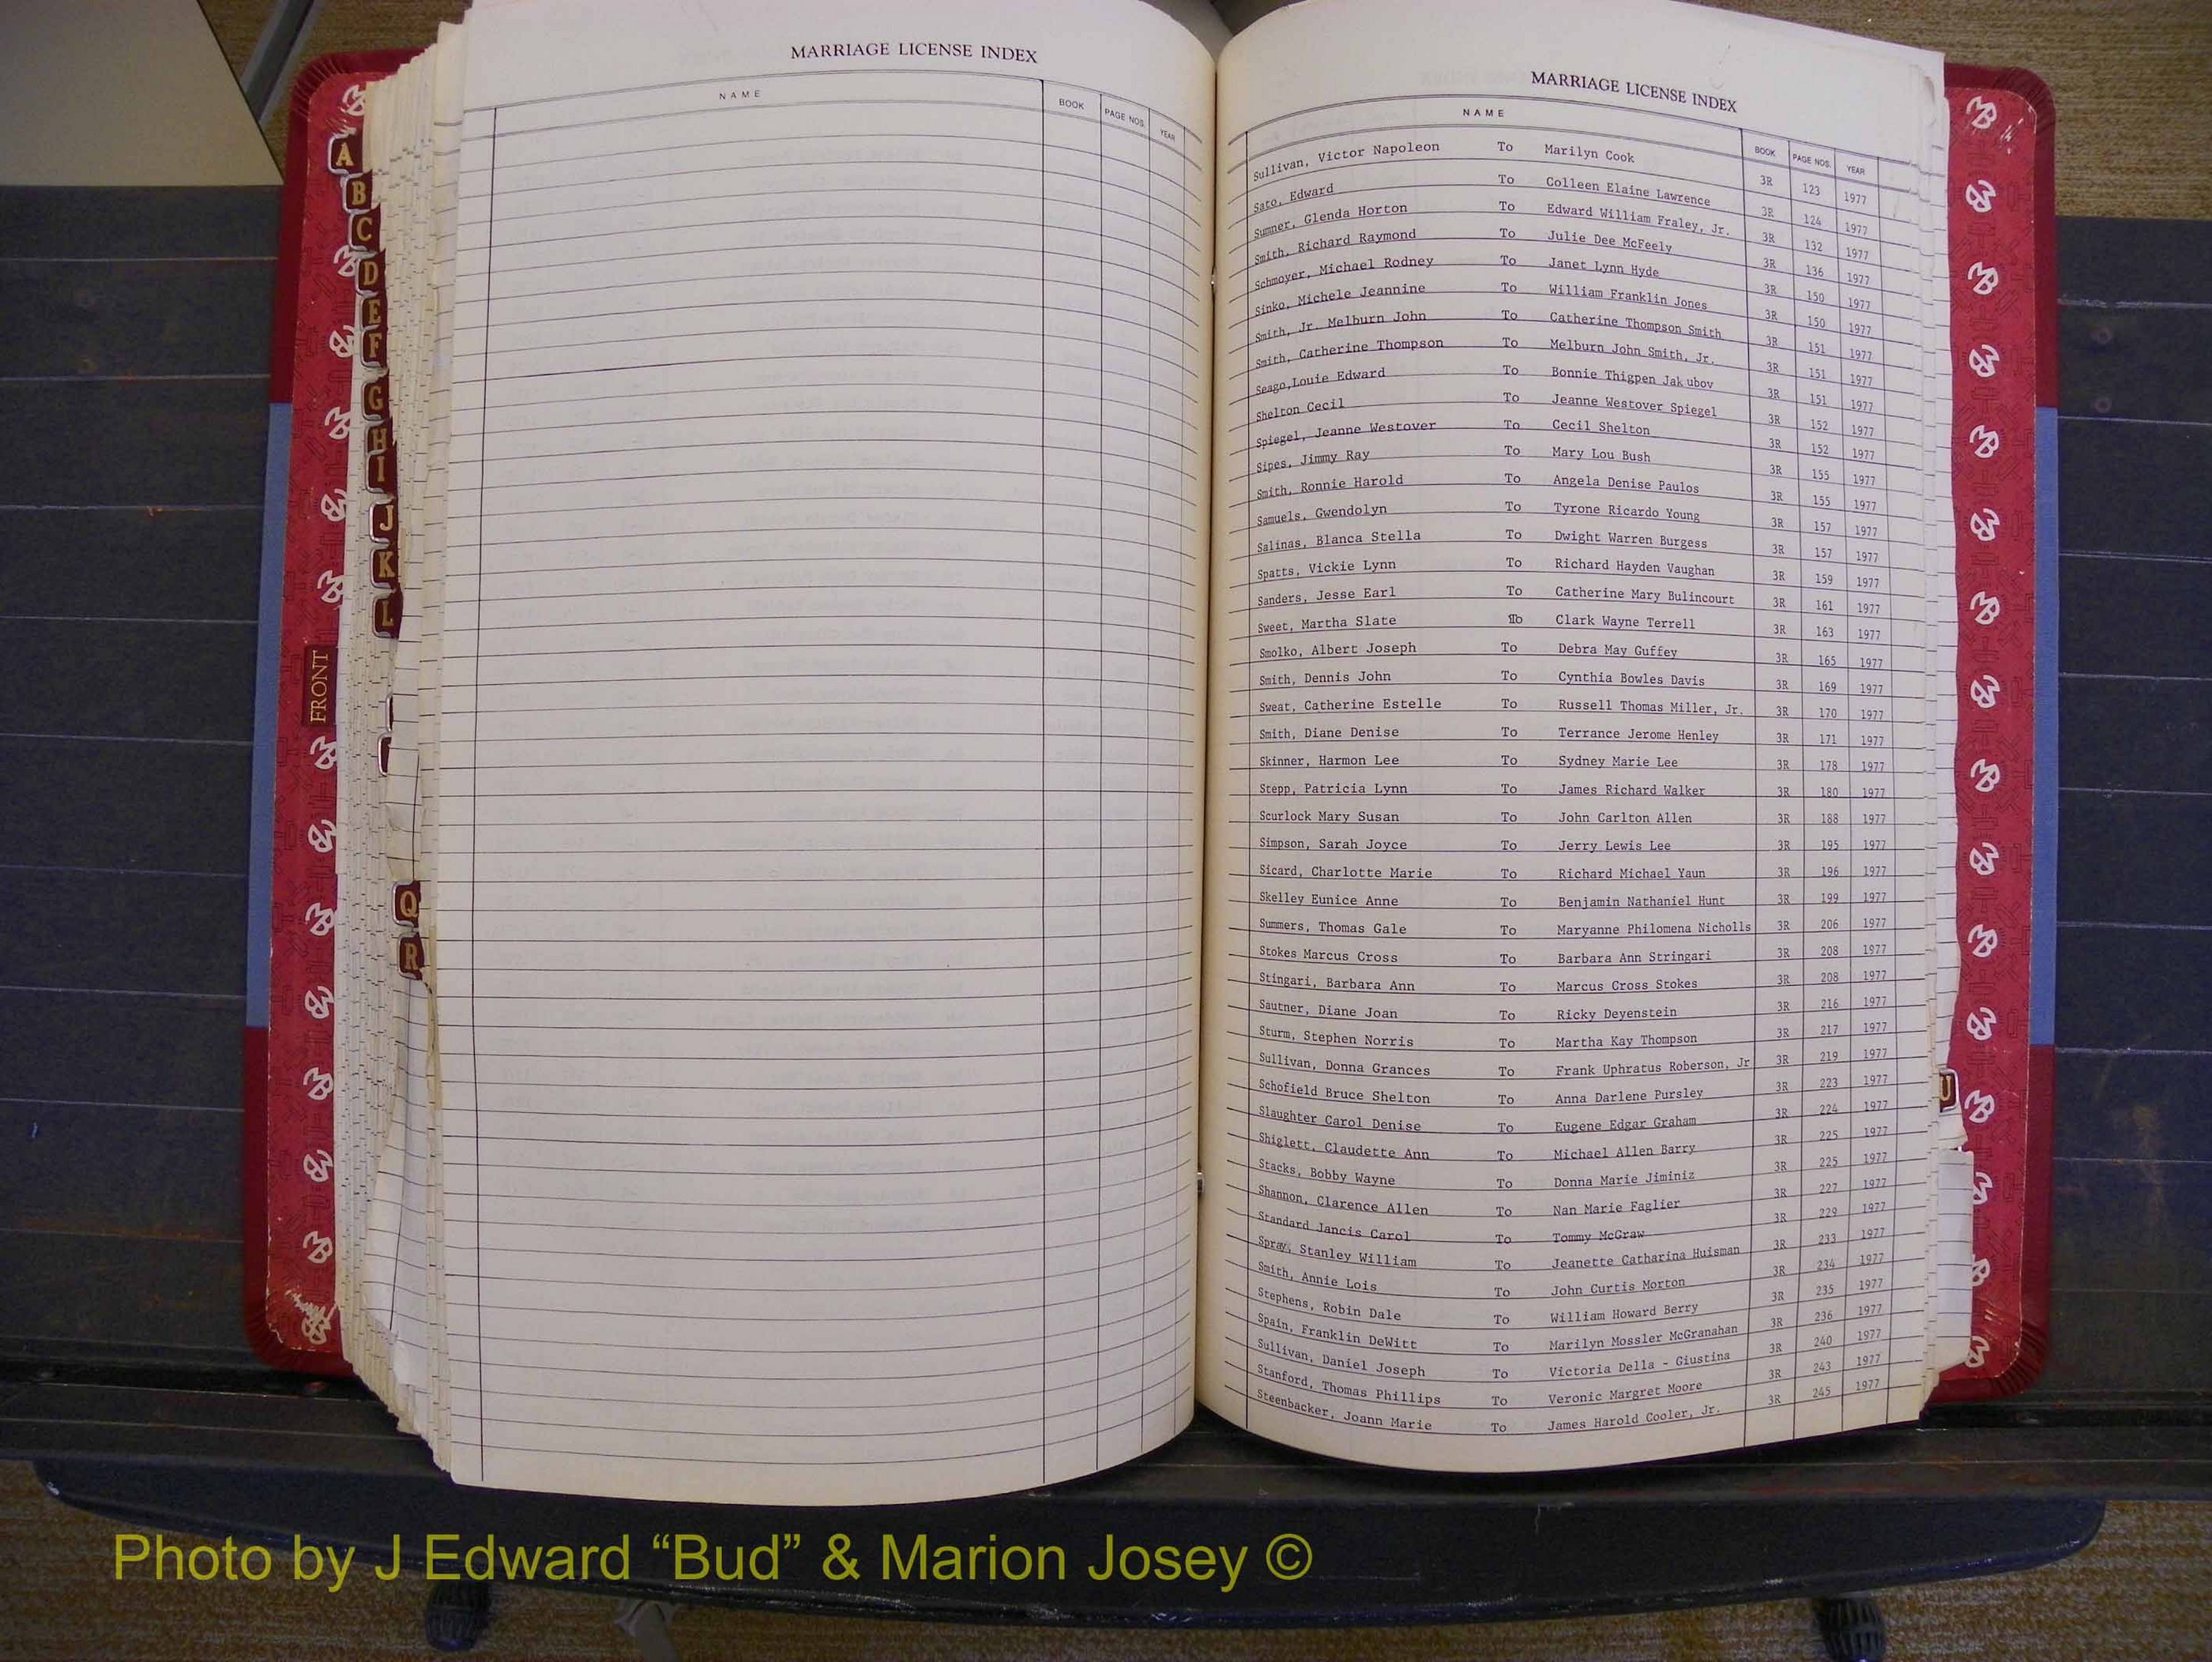 MARRIAGE LICENSE INDEX
NAME BOOK PAGE NOS. YEAR
MARRIAGE LICENSE INDEX
NAME BOOK PAGE NOS. YEAR
Sullivan, Victor Napoleon To Marilyn Cook 3R 123 1977
Sato, Edward To Colleen Elaine Lawrence 3R 124 1977
Sumner, Glenda Horton To Edward William Fraley, Jr. 3R 132 1977
Smith, Richard Raymond To Julie Dee McFeely 3R 136 1977
Schmoyer, Michael Rodney To Janet Lynn Hyde 3R 150 1977
Sinko, Michele Jeannine To William Franklin Jones 3R 150 1977
Smith, Jr. Melburn John To Catherine Thompson Smith 3R 151 1977
Smith, Catherine Thompson To Melburn John Smith, Jr. 3R 151 1977
Seago,Louie Edward To Bonnie Thigpen Jakubov 3R 151 1977
Shelton Cecil To Jeanne Westover Spiegel 3R 152 1977
Spiegel, Jeanne Westover To Cecil Shelton 3R 152 1977
Sipes, Jimmy Ray To Mary Lou Bush 3R 155 1977
Smith, Ronnie Harold To Angela Denise Paulos 3R 155 1977
Samuels, Gwendolyn To Tyrone Ricardo Young 3R 157 1977
Salinas, Blanca Stella To Dwight Warren Burgess 3R 157 1977
Spatts, Vickie Lynn To Richard Hayden Vaughan 3R 159 1977
Sanders, Jesse Earl To Catherine Mary Bulincourt 3R 161 1977
Sweet, Martha Slate To Clark Wayne Terrell 3R 163 1977
Smolko, Albert Joseph To Debra May Guffey 3R 165 1977
Smith, Dennis John To Cynthia Bowles Davis 3R 169 1977
Sweat, Catherine Estelle To Russell Thomas Miller, Jr. 3R 170 1977
Smith, Diane Denise To Terrance Jerome Henley 3R 171 1977
Skinner, Harmon Lee To Sydney Marie Lee 3R 178 1977
Stepp, Patricia Lynn To James Richard Walker 3R 180 1977
Scurlock Mary Susan To John Carlton Allen 3R 188 1977
Simpson, Sarah Joyce To Jerry Lewis Lee 3R 195 1977
Sicard, Charlotte Marie To Richard Michael Yaun 3R 196 1977
Skelley Eunice Anne To Benjamin Nathaniel Hunt 3R 199 1977
Summers, Thomas Gale To Maryanne Philomena Nicholls 3R 206 1977
Stokes Marcus Cross To Barbara Ann Stringari 3R 208 1977
Stingari, Barbara Ann To Marcus Cross Stokes 3R 208 1977
Sautner, Diane Joan To Ricky Deyenstein 3R 216 1977
Sturm, Stephen Norris To Martha Kay Thompson 3R 217 1977
Sullivan, Donna Grances To Frank Uphratus Roberson, Jr 3R 219 1977
Schofield Bruce Shelton To Anna Darlene Pursley 3R 223 1977
Slaughter Carol Denise To Eugene Edgar Graham 3R 224 1977
Shiglett, Claudette Ann To Michael Allen Barry 3R 225 1977
Stacks, Bobby Wayne To Donna Marie Jiminiz 3R 225 1977
Shannon, Clarence Allen To Nan Marie Faglier 3R 227 1977
Standard Jancis Carol To Tommy McGraw 3R 229 1977
Spray, Stanley William To Jeanette Catharina Huisman 3R 233 1977
Smith, Annie Lois To John Curtis Morton 3R 234 1977
Stephens, Robin Dale To William Howard Berry 3R 235 1977
Spain, Franklin DeWitt To Marilyn Mossler McGranahan 3R 236 1977
Sullivan, Daniel Joseph To Victoria Della - Giustina 3R 240 1977
Stanford, Thomas Phillips To Veronic Margret Moore 3R 243 1977
Steenbacker, Joann Marie To James Harold Cooler, Jr. 3R 245 1977
A
B
C
D
E
F
G
H
I
J
K
L
FRONT
Q
R
U
Photo by J Edward “Bud” & Marion Josey ©